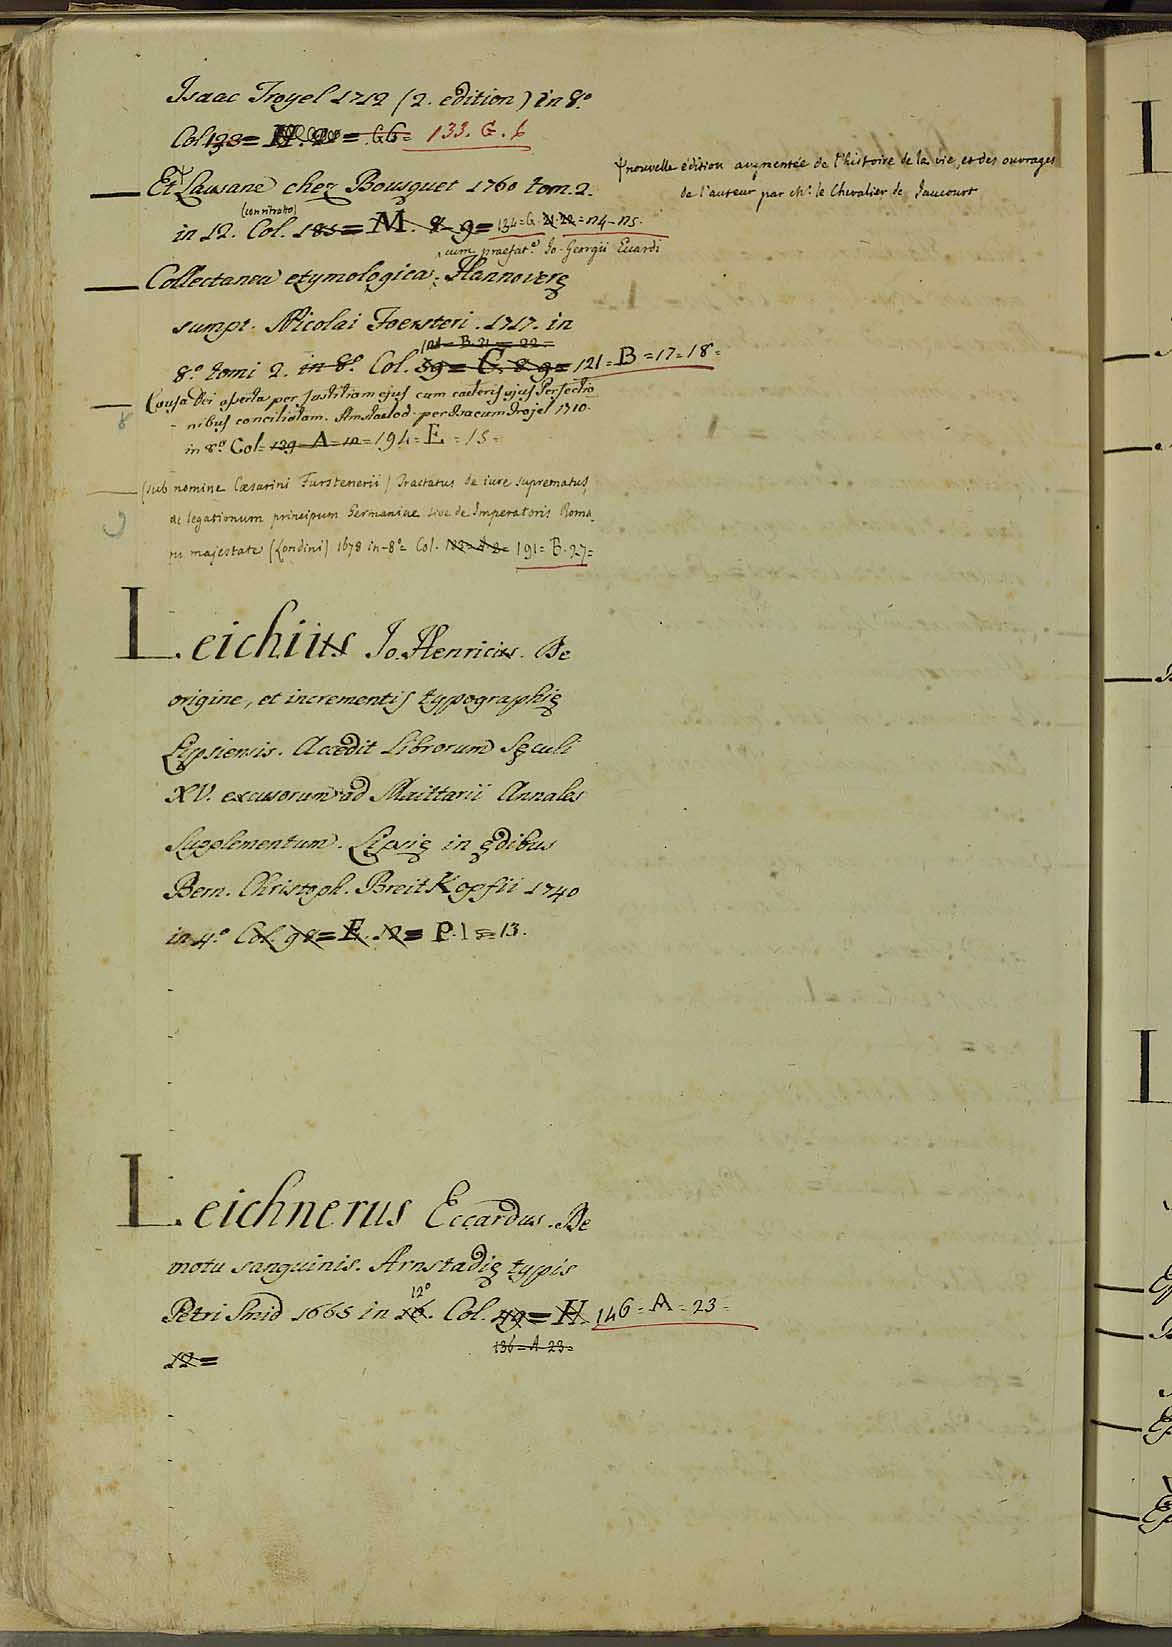 Isaac Troyel 1712 (2. edition) in 8.º
Col 133. G. 6
Et Ψ Lausane chez Bousquet 1760 tom. 2.
Ψ nouvelle édition augmentée de l'histoire de la vie, et des ouvrages
de l'auteur par ch.r le Chevalier de Jaucourt
in 12. Col. 185 = M. 8. 9 = 134 = G. = n4 - n5.
cum praefat.e Jo. Georgii Eccardi
Collectanea etymologica. Hannoverę
sumpt. Nicolai Foersteri. 1717. in
121 = B. 21 = 22 =
8.º tomi 2. in 8.º Col. 59 = C. 8. 9 = 121 = B = 17 = 18 =
Causa Dei asserta per Justitiam ejus cum caeteris ejus Perfectio
nibus conciliatam. Amstaelod. per Isacum Trojel 1710.
in 8.º Col = 129 - A = 12 = 194 = E = 15 =
(sub nomine Cæsarini Furstenerii) Tractatus de iure suprematus,
ac legationum principum Germaniae sive de Imperatoris Roma
ni majestate (Londini) 1678 in - 8º = Col. 191 = B. 27 =
Leichiius Jo. Henricus. De
origine, et incrementis typographię
Lipsiensis. Accedit Librorum Sęculi
XV. excusorum ad Maittarii Annales
Supplementum. Lipsię in ędibus
Bern. Christoph. BreitKopfii 1740
in 4.º Col. 98 = E. 12 = P. 1 = 13.
Leichnerus Eccardus. De
motu sanguinis. Arnstadię typis
12º
Petri Smid 1665 in 16. Col. 49 = H. 146 = A = 23 =
12 = 136 = A 23 =